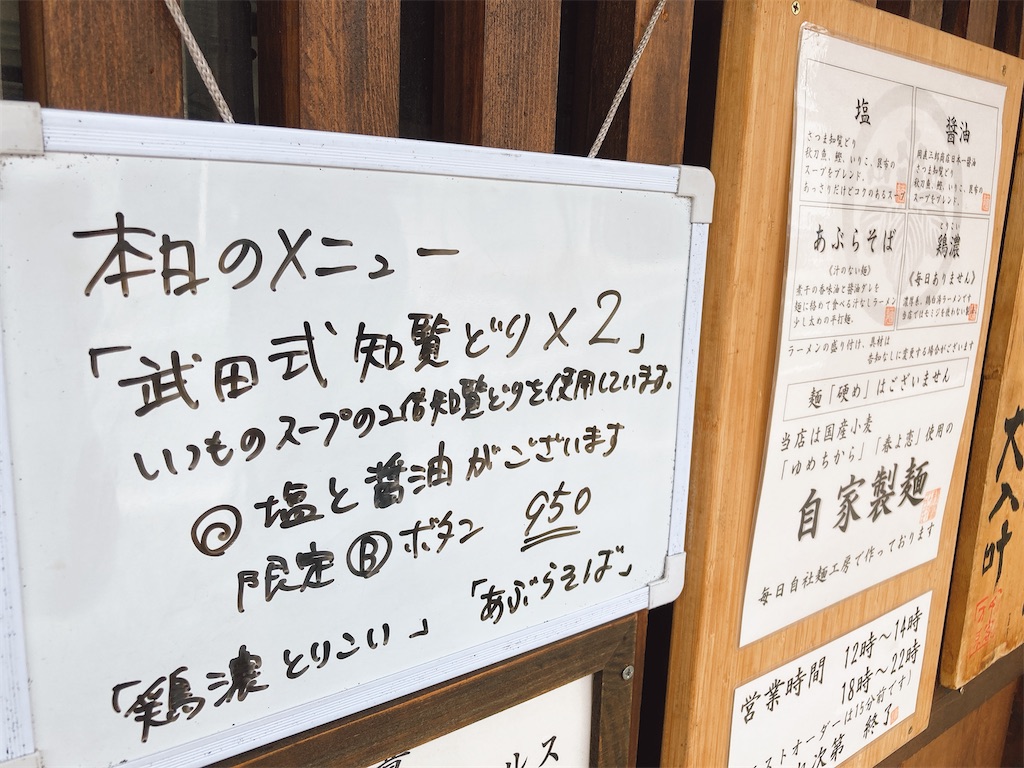 本日のメニュー
「武田式 知覧どり×2」
いつものスープの2倍知覧どりを使用しています。
◎塩と醤油がございます
限定Ⓑボタン 950
「鶏濃とりこい」 「あぶらそば」
塩
さつま知覧どり
秋刀魚、鰹、いりこ、昆布の
スープをブレンド。
あっさりだけどコクのあるスープ
醤油
岡直三郎商店日本一醤油
さつま知覧どり
秋刀魚、鰹、いりこ、昆布の
スープをブレンド。
あぶらそば
《汁のない麺》
煮干の香味油と醤油ダレを
麺に絡めて食べる汁なしラーメン
少し太めの平打麺。
とりこい
鶏濃
《毎日ありません》
濃厚系、鶏白湯ラーメンです
当店ではモミジを使わない
ラーメンの盛り付け、具材は
告知なしに変更する場合がございます
麺「硬め」はございません
当店は国産小麦
「ゆめちから」「春よ恋」使用の
自家製麺
毎日自社麺工房で作っております
営業時間 12時〜14時
18時〜22時
ストオーダーは15分前です)
次第 終了
大入叶
ルス